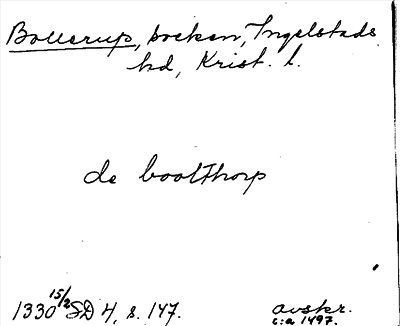 Bollerup, socken, Ingelstads
hd, Krist. l.
de boolthorp
1330 15/2 SD 4, s. 147.
avskr.
c:a 1497.